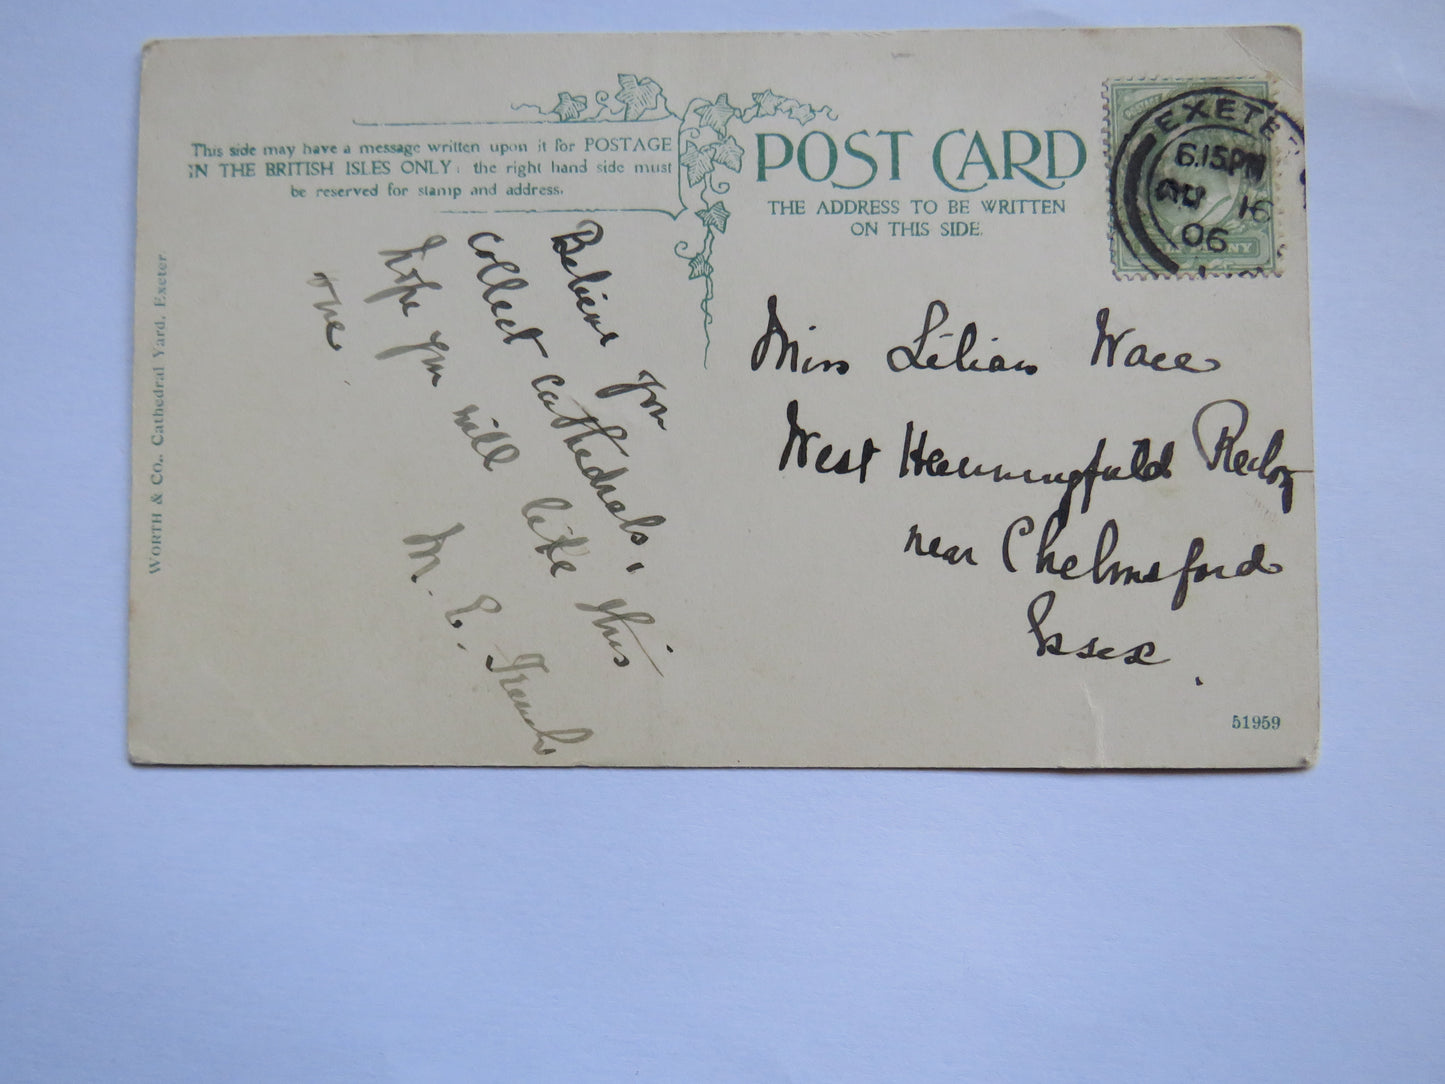 This side may have a message written upon it for POSTAGE
IN THE BRITISH ISLES ONLY: the right hand side must
be reserved for stamp and address.
POST CARD
THE ADDRESS TO BE WRITTEN
ON THIS SIDE.
EXETE
6.15PM
16
06
NY
Believe you
collect cathedrals,
hope you will like this
one
M. E. French
Miss Lilian Wace
West Hanningfield
near Chelmsford
Essex.
WORTH & CO., Cathedral Yard, Exeter.
51959